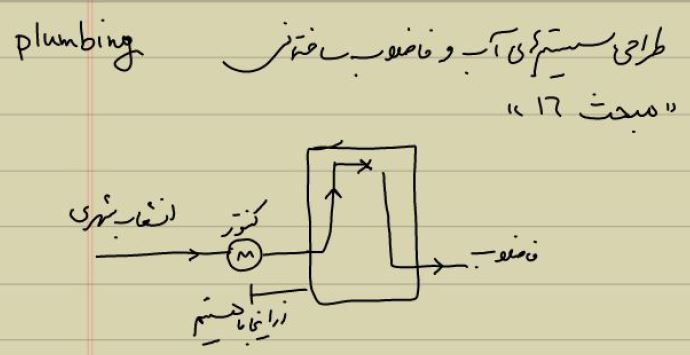 plumbing
طراحی سیستم‌های آب و فاضلاب ساختمانی
«مبحث ١٦»
انشعاب شهری
کنتور
M
فاضلاب
از اینجا با هستیم